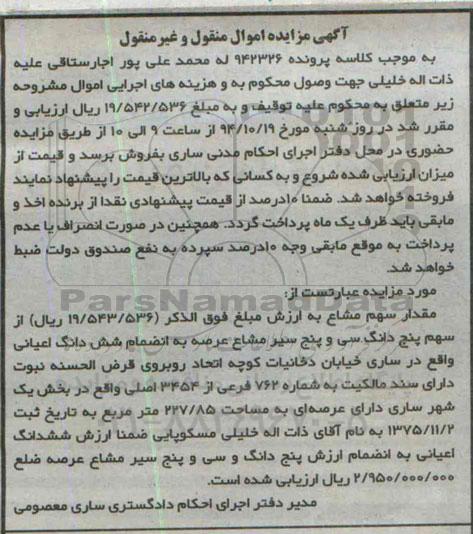 آگهی مزایده اموال منقول و غیرمنقول
به موجب کلاسه پرونده ۹۴۲۳۲۶ له محمد علی پور اجارستاقی علیه
ذات اله خلیلی جهت وصول محکوم به و هزینه های اجرایی اموال مشروحه
زیر متعلق به محکوم علیه توقیف و به مبلغ ۱۹/۵۴۲/۵۳۶ ریال ارزیابی و
مقرر شد در روز شنبه مورخ ۹۴/۱۰/۱۹ از ساعت ۹ الی ۱۰ از طریق مزایده
حضوری در محل دفتر اجرای احکام مدنی ساری بفروش برسد و قیمت از
میزان ارزیابی شده شروع و به کسانی که بالاترین قیمت را پیشنهاد نمایند
فروخته خواهد شد. ضمنا ۱۰درصد از قیمت پیشنهادی نقدا از برنده اخذ و
مابقی باید ظرف یک ماه پرداخت گردد. همچنین در صورت انصراف یا عدم
پرداخت به موقع مابقی وجه ۱۰درصد سپرده به نفع صندوق دولت ضبط
خواهد شد.
مورد مزایده عبارتست از:
ParsNamadData
مقدار سهم مشاع به ارزش مبلغ فوق الذکر (۱۹/۵۴۳/۵۳۶ ریال) از
سهم پنج دانگ سی و پنج سیر مشاع عرصه به انضمام شش دانگ اعیانی
واقع در ساری خیابان دخانیات کوچه اتحاد روبروی قرض الحسنه نبوت
دارای سند مالکیت به شماره ۷۶۲ فرعی از ۳۴۵۴ اصلی واقع در بخش یک
شهر ساری دارای عرصه‌ای به مساحت ۲۲۷/۸۵ متر مربع به تاریخ ثبت
۱۳۷۵/۱۱/۲ به نام آقای ذات اله خلیلی مسکوپایی ضمنا ارزش ششدانگ
اعیانی به انضمام ارزش پنج دانگ و سی و پنج سیر مشاع عرصه ضلع
۲/۹۵۰/۰۰۰/۰۰۰ ریال ارزیابی شده است.
مدیر دفتر اجرای احکام دادگستری ساری معصومی